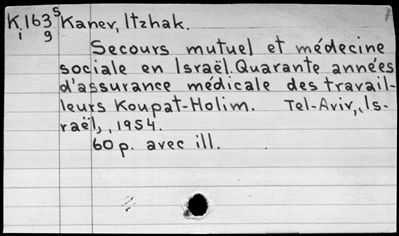 K,163S Kanev, Itzhak.
i 9
Secours mutuel et médecine
sociale en Israël. Quarante années
d'assurance médicale des travail-
leurs Koupat-Holim. Tel-Aviv, Is-
raël, 1954.
60 p. avec ill.